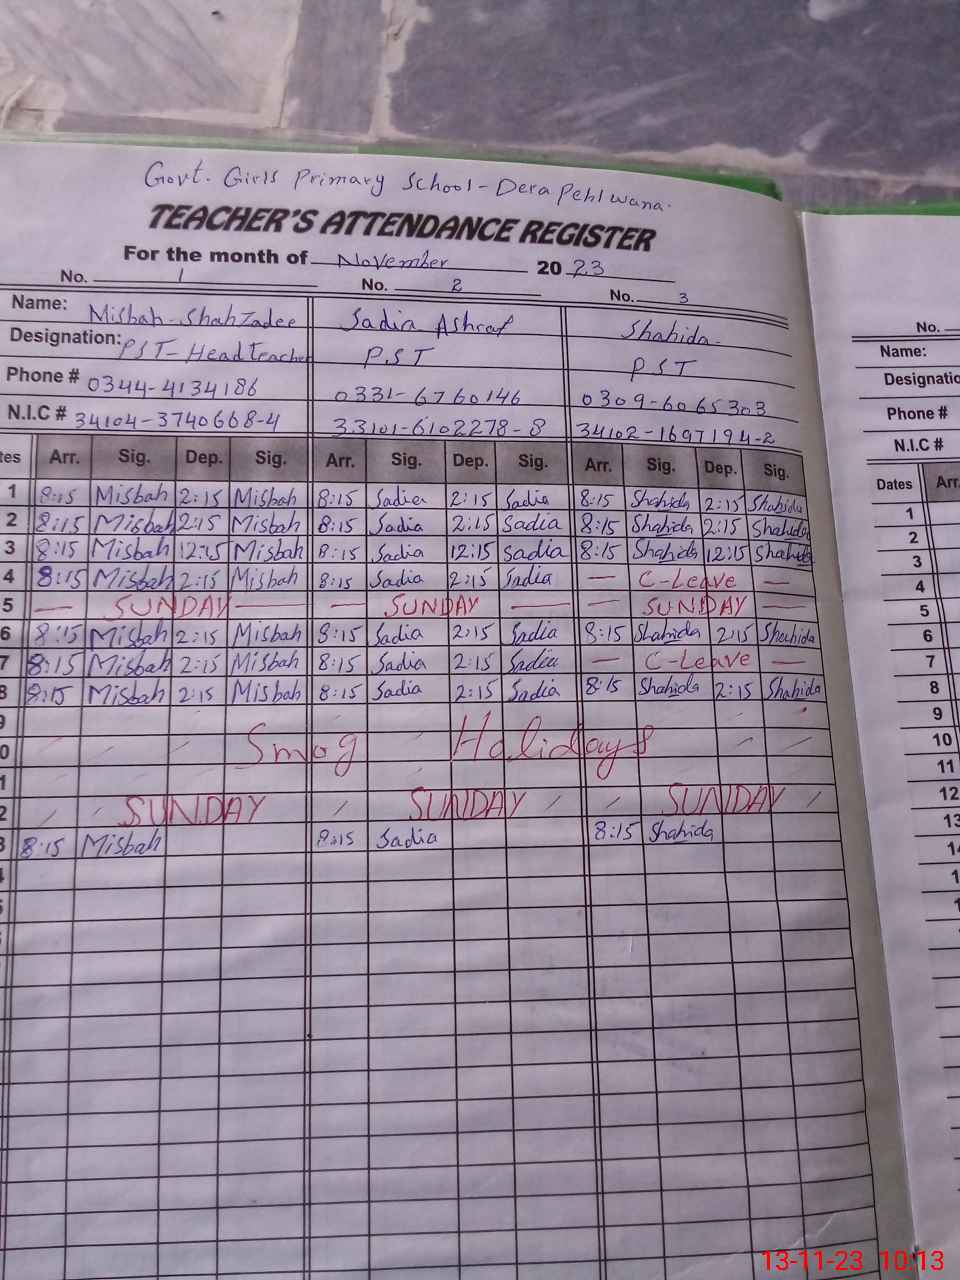 Govt. Girls Primary School - Dera Pehlwana.
TEACHER'S ATTENDANCE REGISTER
For the month of November 2023
No. 1 No. 2 No. 3
Name: Misbah-Shahzadee Sadia Ashraf Shahida
Designation: PST-Headteacher P.S.T PST
Phone # 0344-4134186 0331-6760146 0309-6065303
N.I.C # 34104-3740668-4 33101-6102278-8 34102-1697194-2
tes Arr. Sig. Dep. Sig. Arr. Sig. Dep. Sig. Arr. Sig. Dep. Sig.
1 8:15 Misbah 2:15 Misbah 8:15 Sadia 2:15 Sadia 8:15 Shahida 2:15 Shahida
2 8:15 Misbah 2:15 Misbah 8:15 Sadia 2:15 Sadia 8:15 Shahida 2:15 Shahida
3 8:15 Misbah 12:15 Misbah 8:15 Sadia 12:15 Sadia 8:15 Shahida 12:15 Shahida
4 8:15 Misbah 2:15 Misbah 8:15 Sadia 2:15 Sadia — C-Leave —
5 — SUNDAY — — SUNDAY — — SUNDAY —
6 8:15 Misbah 2:15 Misbah 8:15 Sadia 2:15 Sadia 8:15 Shahida 2:15 Shahida
7 8:15 Misbah 2:15 Misbah 8:15 Sadia 2:15 Sadia — C-Leave —
8 8:15 Misbah 2:15 Misbah 8:15 Sadia 2:15 Sadia 8:15 Shahida 2:15 Shahida
9
0 Smog Holidays
1
2 SUNDAY SUNDAY SUNDAY
3 8:15 Misbah 8:15 Sadia 8:15 Shahida
No.
Name:
Designatio
Phone #
N.I.C #
Dates Arr.
1
2
3
4
5
6
7
8
9
10
11
12
13
14
13-11-23 10:13